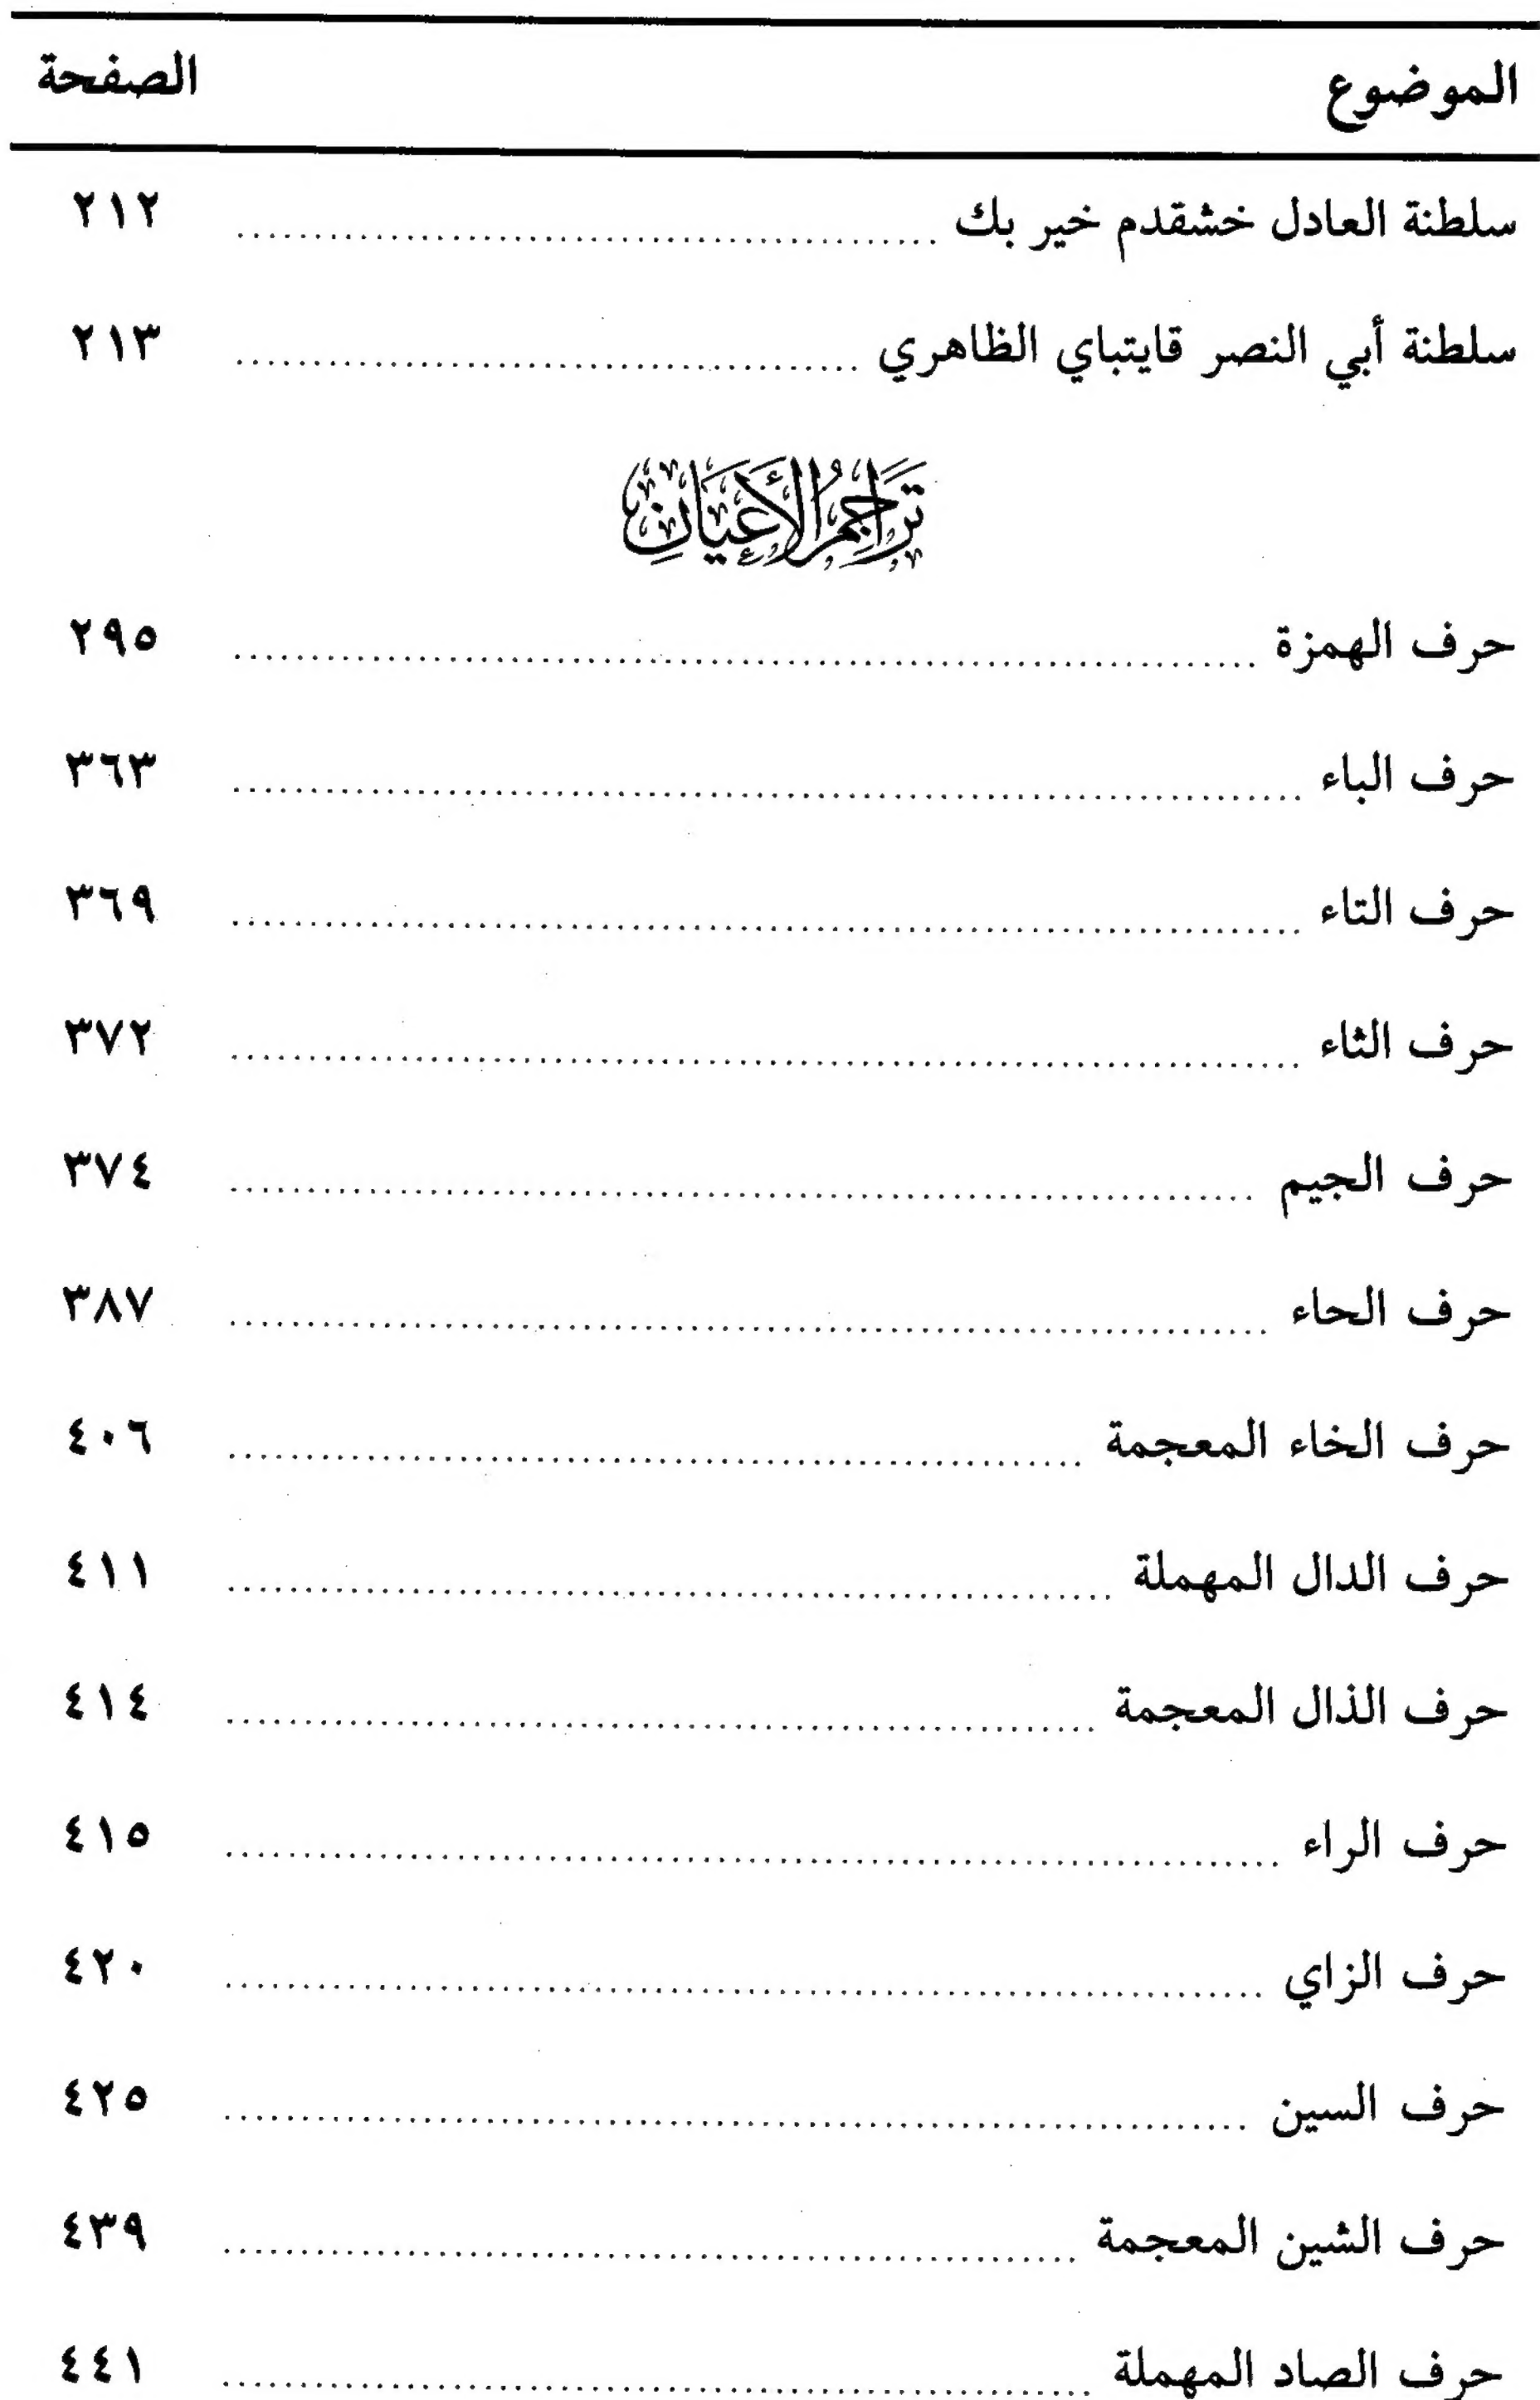 الموضوع الصفحة
سلطنة العادل خشقدم خير بك ........ ٢١٢
سلطنة أبي النصر قايتباي الظاهري ........ ٢١٣
تَرَاجِمُ الأَعْيَانِ
حرف الهمزة ........ ٢٩٥
حرف الباء ........ ٣٦٣
حرف التاء ........ ٣٦٩
حرف الثاء ........ ٣٧٢
حرف الجيم ........ ٣٧٤
حرف الحاء ........ ٣٨٧
حرف الخاء المعجمة ........ ٤٠٦
حرف الدال المهملة ........ ٤١١
حرف الذال المعجمة ........ ٤١٤
حرف الراء ........ ٤١٥
حرف الزاي ........ ٤٢٠
حرف السين ........ ٤٢٥
حرف الشين المعجمة ........ ٤٣٩
حرف الصاد المهملة ........ ٤٤١